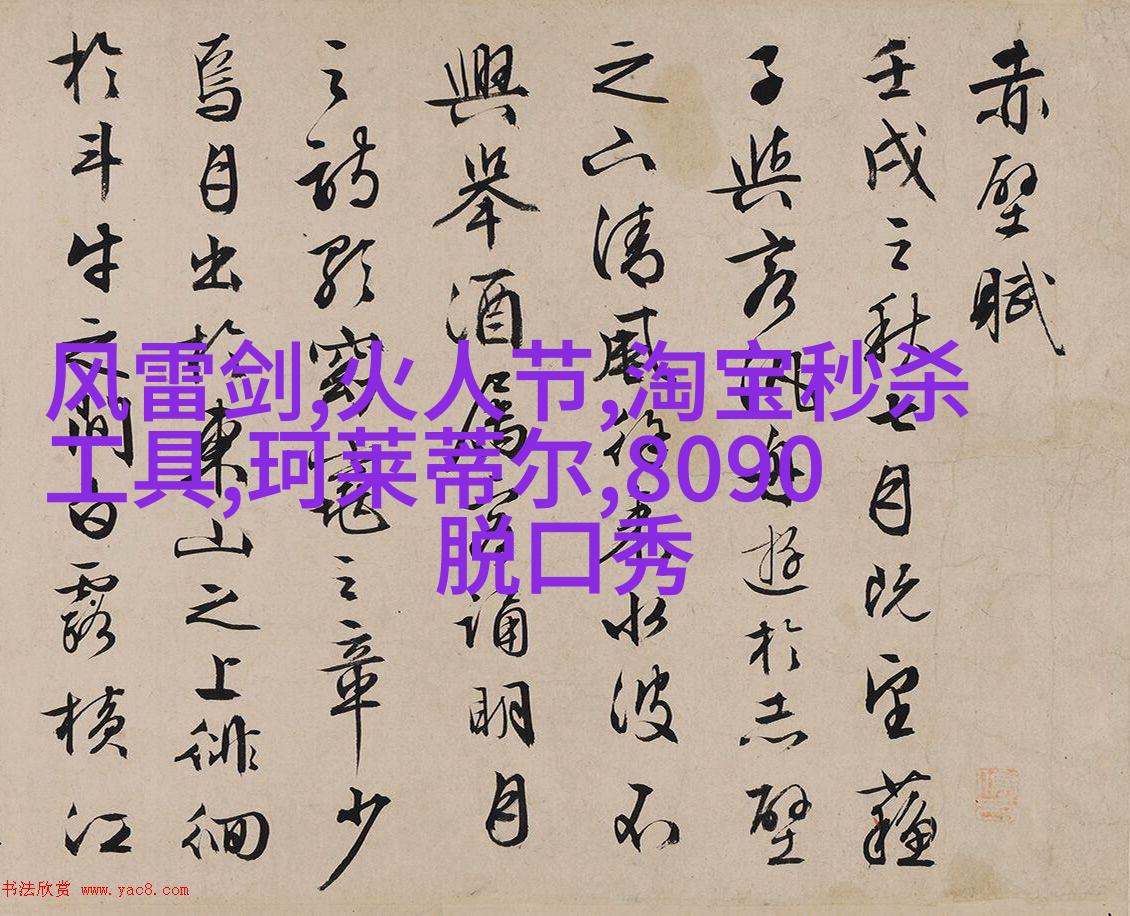 赤壁賦
壬戌之秋七月既望蘇
子與客泛舟遊於赤壁
之下清風徐來水波不
興舉酒屬客誦明月
之詩歌窈窕之章少
焉月出於東山之上徘徊
於斗牛之間白露橫江
风雷剑,火人节,淘宝秒杀
工具,珂莱蒂尔,8090
脱口秀
书法欣赏 www.yac8.com